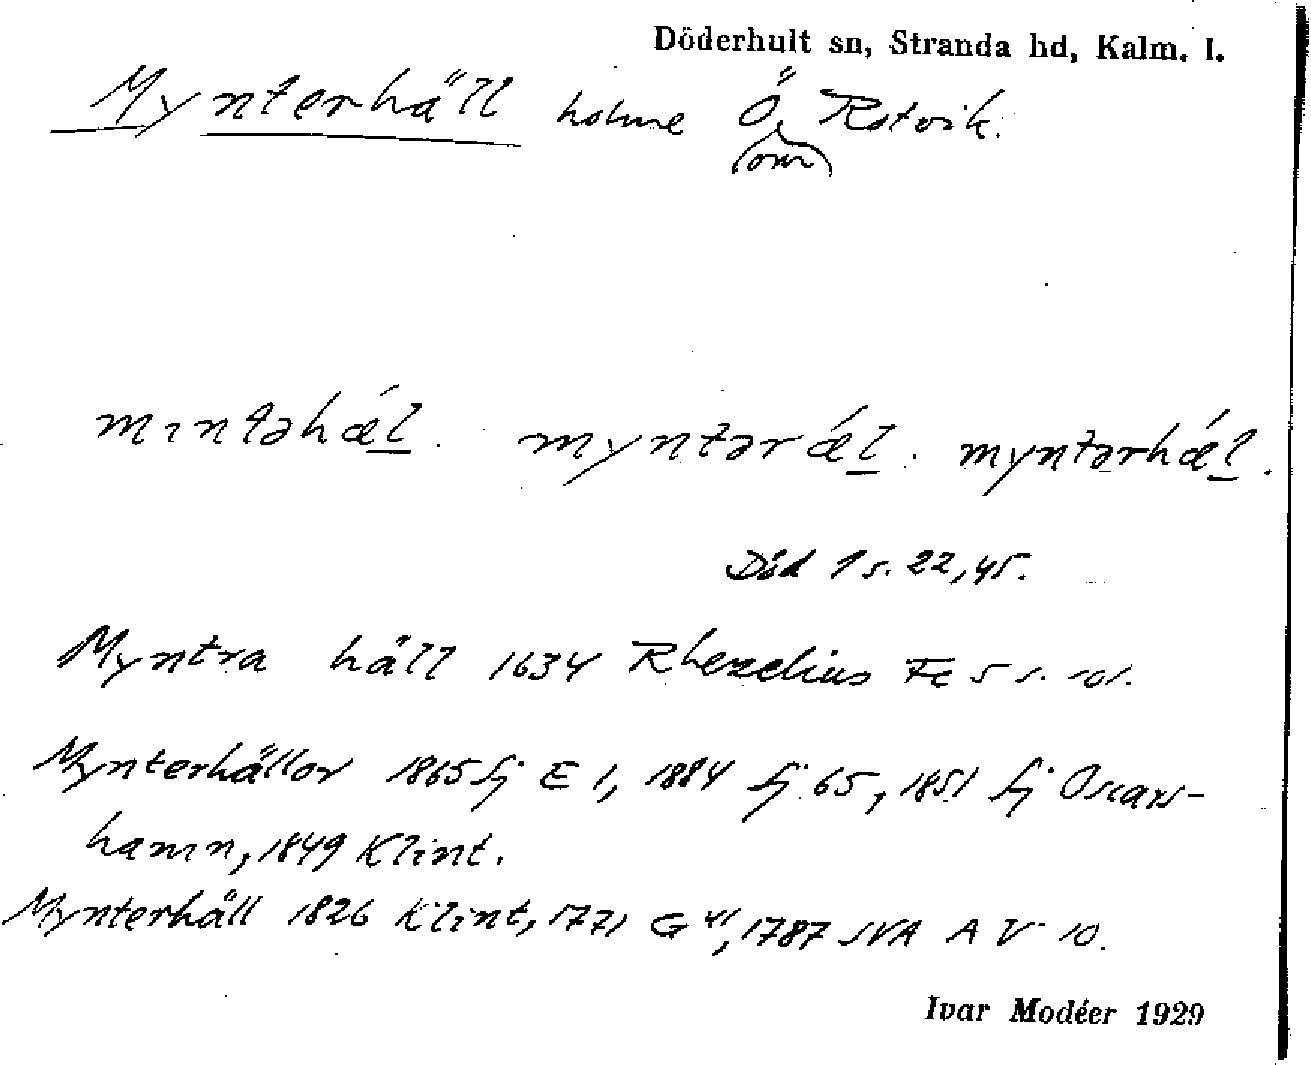 Döderhult sn, Stranda hd, Kalm. l.
Mynterhäll holme Ö Rotvik.
(om)
mıntəhǽl. myntərǽl. myntərhǽl.
Död 1 s. 22, 45.
Myntra häll 1634 Rhezelius Fc 5 s. 101.
Mynterhällor 1865 sj E 1, 1884 sj 65, 1851 sj Oscars-
hamn, 1849 Klint.
Mynterhäll 1826 Klint, 1771 G, 1787 SVA A V 10.
Ivar Modéer 1929